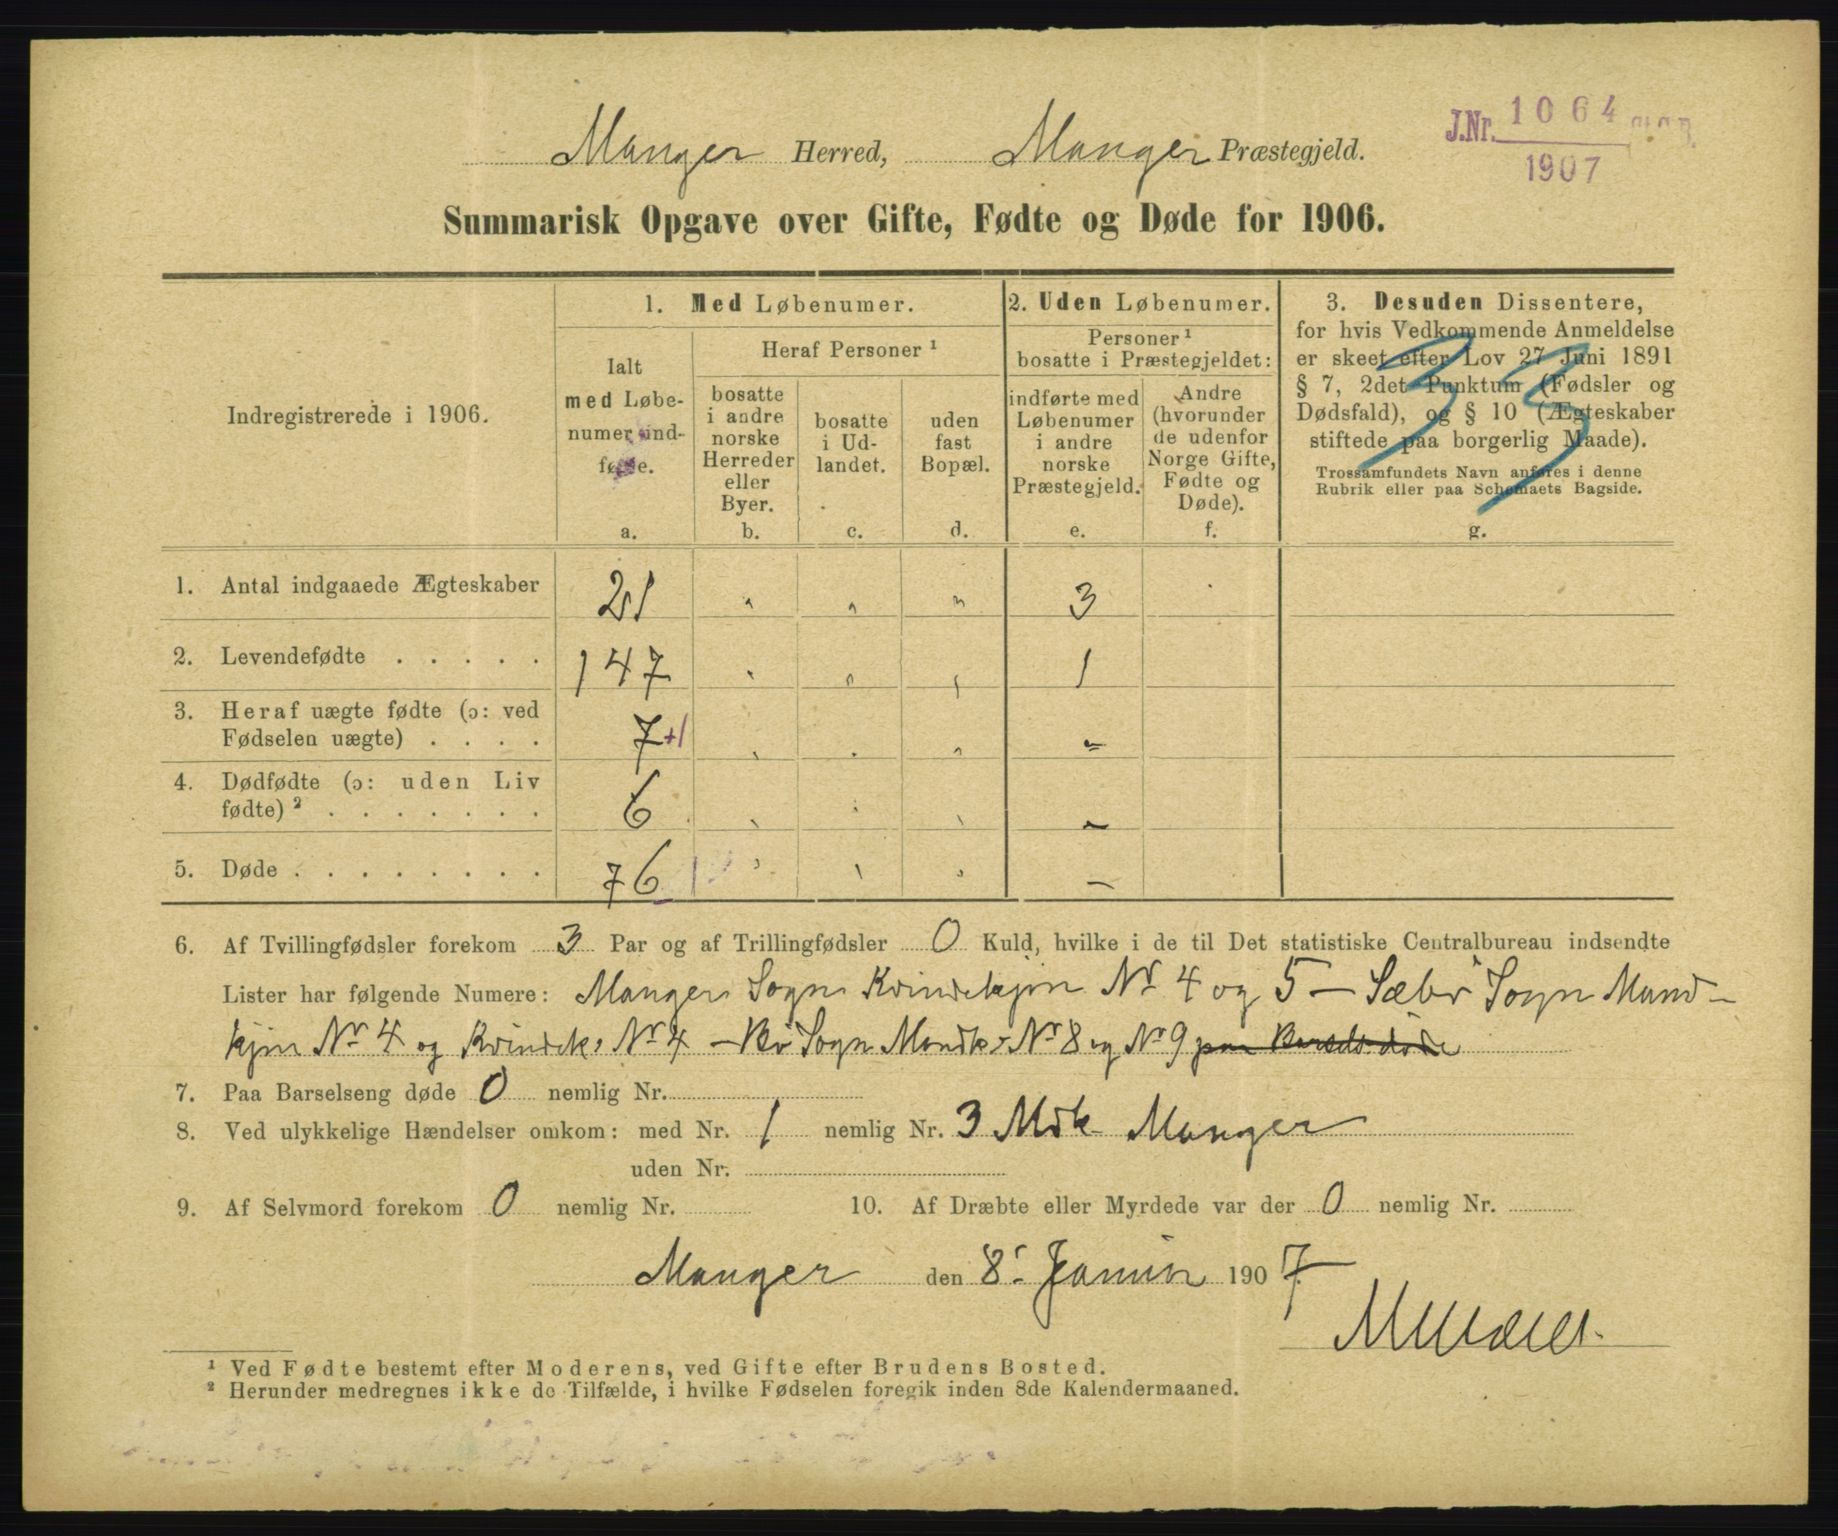 Manger Herred, Manger Præstegjeld.
J.Nr. 1064
1907
Summarisk Opgave over Gifte, Fødte og Døde for 1906.
Indregistrerede i 1906.
1. Med Løbenumer.
Ialt med Løbenumer indførte.
a.
Heraf Personer ¹
bosatte i andre norske Herreder eller Byer.
b.
bosatte i Udlandet.
c.
uden fast Bopæl.
d.
2. Uden Løbenumer.
Personer ¹ bosatte i Præstegjeldet:
indførte med Løbenumer i andre norske Præstegjeld.
e.
Andre (hvorunder de udenfor Norge Gifte, Fødte og Døde).
f.
3. Desuden Dissentere,
for hvis Vedkommende Anmeldelse
er skeet efter Lov 27 Juni 1891
§ 7, 2det Punktum (Fødsler og
Dødsfald), og § 10 (Ægteskaber
stiftede paa borgerlig Maade).
Trossamfundets Navn anføres i denne
Rubrik eller paa Schemaets Bagside.
g.
33
1. Antal indgaaede Ægteskaber 21 " " " 3
2. Levendefødte . . . . . 147 " " " 1
3. Heraf uægte fødte (ɔ: ved
Fødselen uægte) . . . . 7+1 " " " -
4. Dødfødte (ɔ: uden Liv
fødte) ² . . . . . . . 6 " " " -
5. Døde . . . . . . . . 76 " " " -
6. Af Tvillingfødsler forekom 3 Par og af Trillingfødsler 0 Kuld, hvilke i de til Det statistiske Centralbureau indsendte
Lister har følgende Numere: Manger Sogn Kvindekjøn Nr 4 og 5 – Sæbø Sogn Mand-
kjøn Nr 4 og Kvindek. Nr 4 – Bø Sogn Mandk. Nr 8 og Nr 9 paa Barsels døde
7. Paa Barselseng døde 0 nemlig Nr.
8. Ved ulykkelige Hændelser omkom: med Nr. 1 nemlig Nr. 3 Mdk Manger
uden Nr.
9. Af Selvmord forekom 0 nemlig Nr. 10. Af Dræbte eller Myrdede var der 0 nemlig Nr.
Manger den 8' Januar 1907
¹ Ved Fødte bestemt efter Moderens, ved Gifte efter Brudens Bosted.
² Herunder medregnes ikke de Tilfælde, i hvilke Fødselen foregik inden 8de Kalendermaaned.